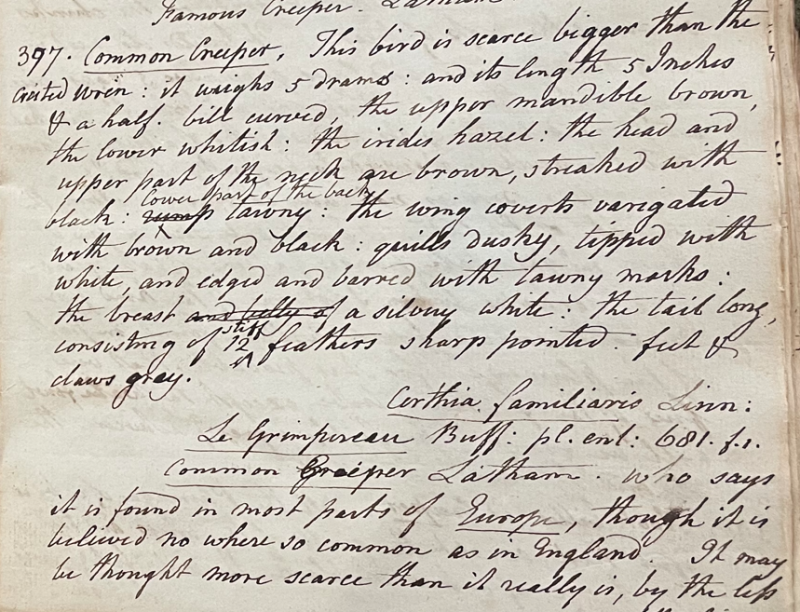 Famous Creeper. Latham
397. Common Creeper. This bird is scarce bigger than the
crested wren: it weighs 5 drams: and its length 5 Inches
& a half. bill curved, the upper mandible brown,
the lower whitish: the irides hazel: the head and
upper part of the neck are brown, streaked with
lower part of the back
black: rump tawny: the wing coverts varigated
with brown and black: quills dusky, tipped with
white, and edged and barred with tawny marks:
the breast and belly of a silvery white: the tail long,
stiff
consisting of 12 feathers sharp pointed. feet &
claws grey.
Certhia familiaris Linn:
Le Grimpereau Buff: pl. enl: 681. f.1.
Common Creeper Latham. who says
it is found in most parts of Europe, though it is
believed no where so common as in England. It may
be thought more scarce than it really is, by the less